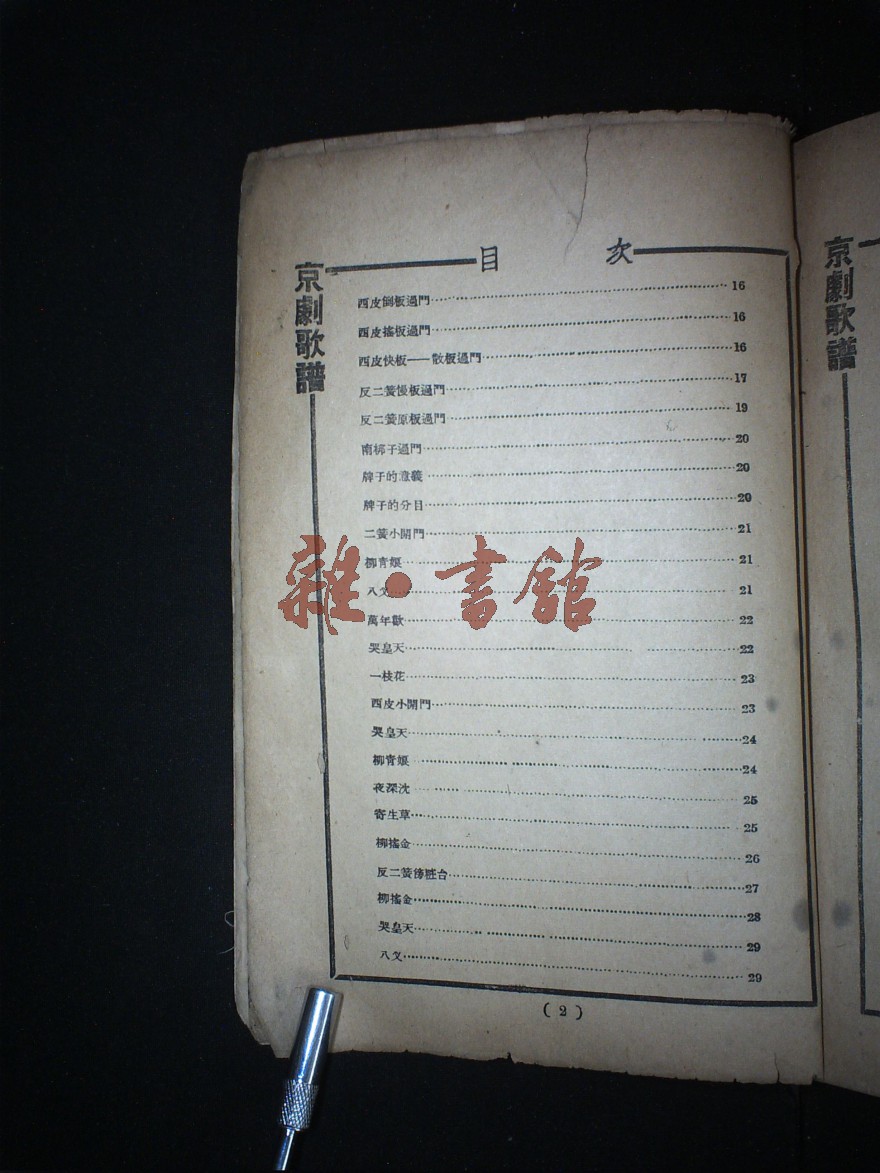 目 次
京劇歌譜
西皮倒板過門 16
西皮搖板過門 16
西皮快板——散板過門 16
反二簧慢板過門 17
反二簧原板過門 19
南梆子過門 20
牌子的意義 20
牌子的分目 20
二簧小開門 21
柳青娘 21
八叉 21
萬年歡 22
哭皇天 22
一枝花 23
西皮小開門 23
哭皇天 24
柳青娘 24
夜深沈 25
寄生草 25
柳搖金 26
反二簧傍粧台 27
柳搖金 28
哭皇天 29
八叉 29
( 2 )
京劇歌譜
雜·書館